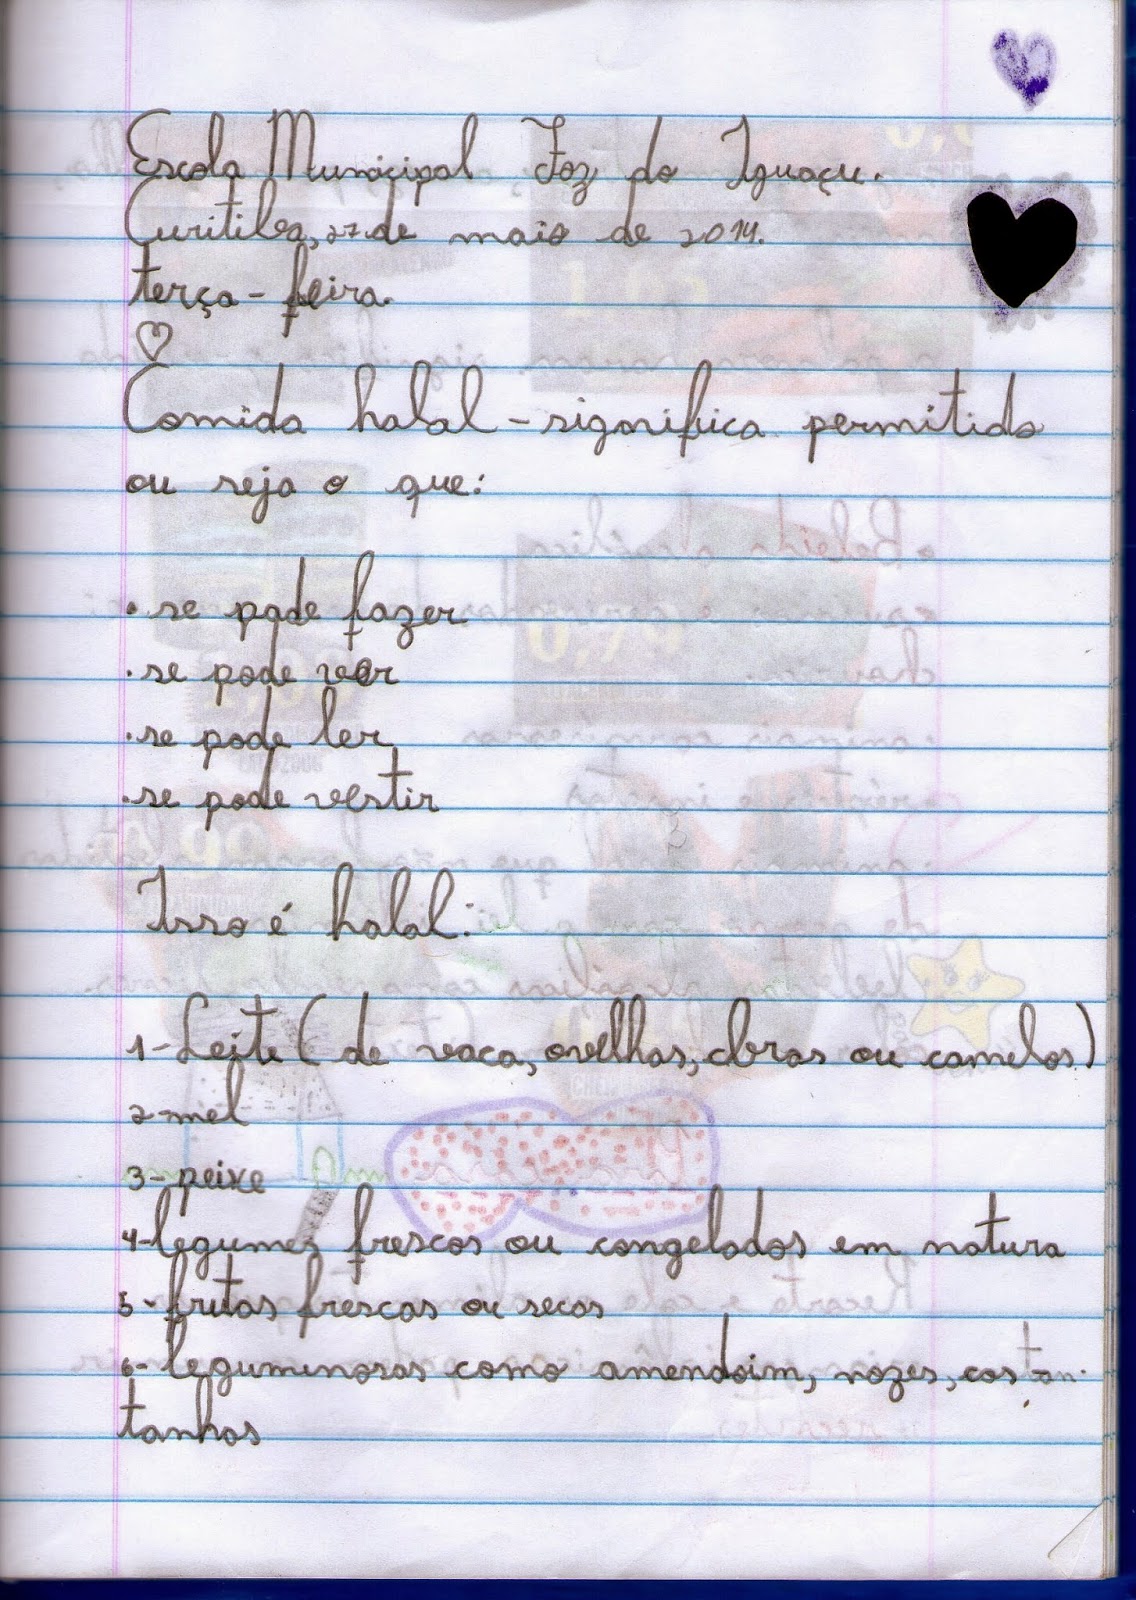 Escola Municipal Foz do Iguaçu.
Curitiba, 27 de maio de 2014.
terça-feira.
Comida halal - significa permitido
ou seja o que:
• se pode fazer
• se pode ver
• se pode ler
• se pode vestir
Isso é halal:
1- Leite (de vaca, ovelhas, cbras ou camelos)
2-mel
3- peixe
4-legumes frescos ou congelados em natura
5-frutas frescas ou secas
6- leguminosas como amendoim, nozes, cas
tanhas